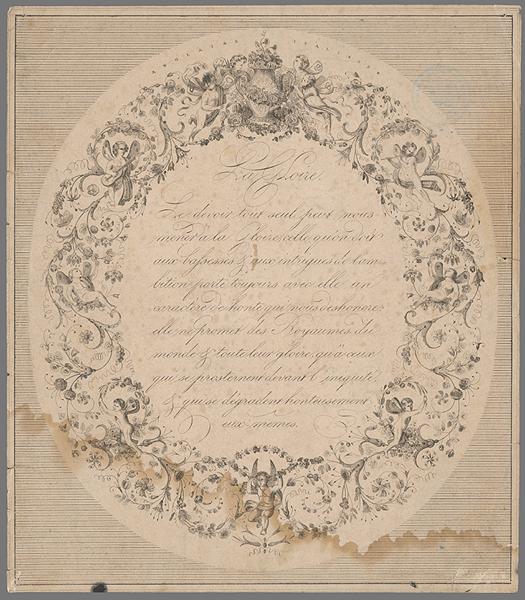 La Gloire.
Le devoir tout seul peut nous
mener à la Gloire, celle qu'on doit
aux bassesses & aux intrigues de l'am-
bition porte toujours avec elle un
caractère de honte qui nous deshonore
elle ne promet des Royaumes du
monde & toute leur gloire, qu'a ceux
qui se prosternent devant l'iniquité,
& qui se dégradent honteusement
eux-mêmes.